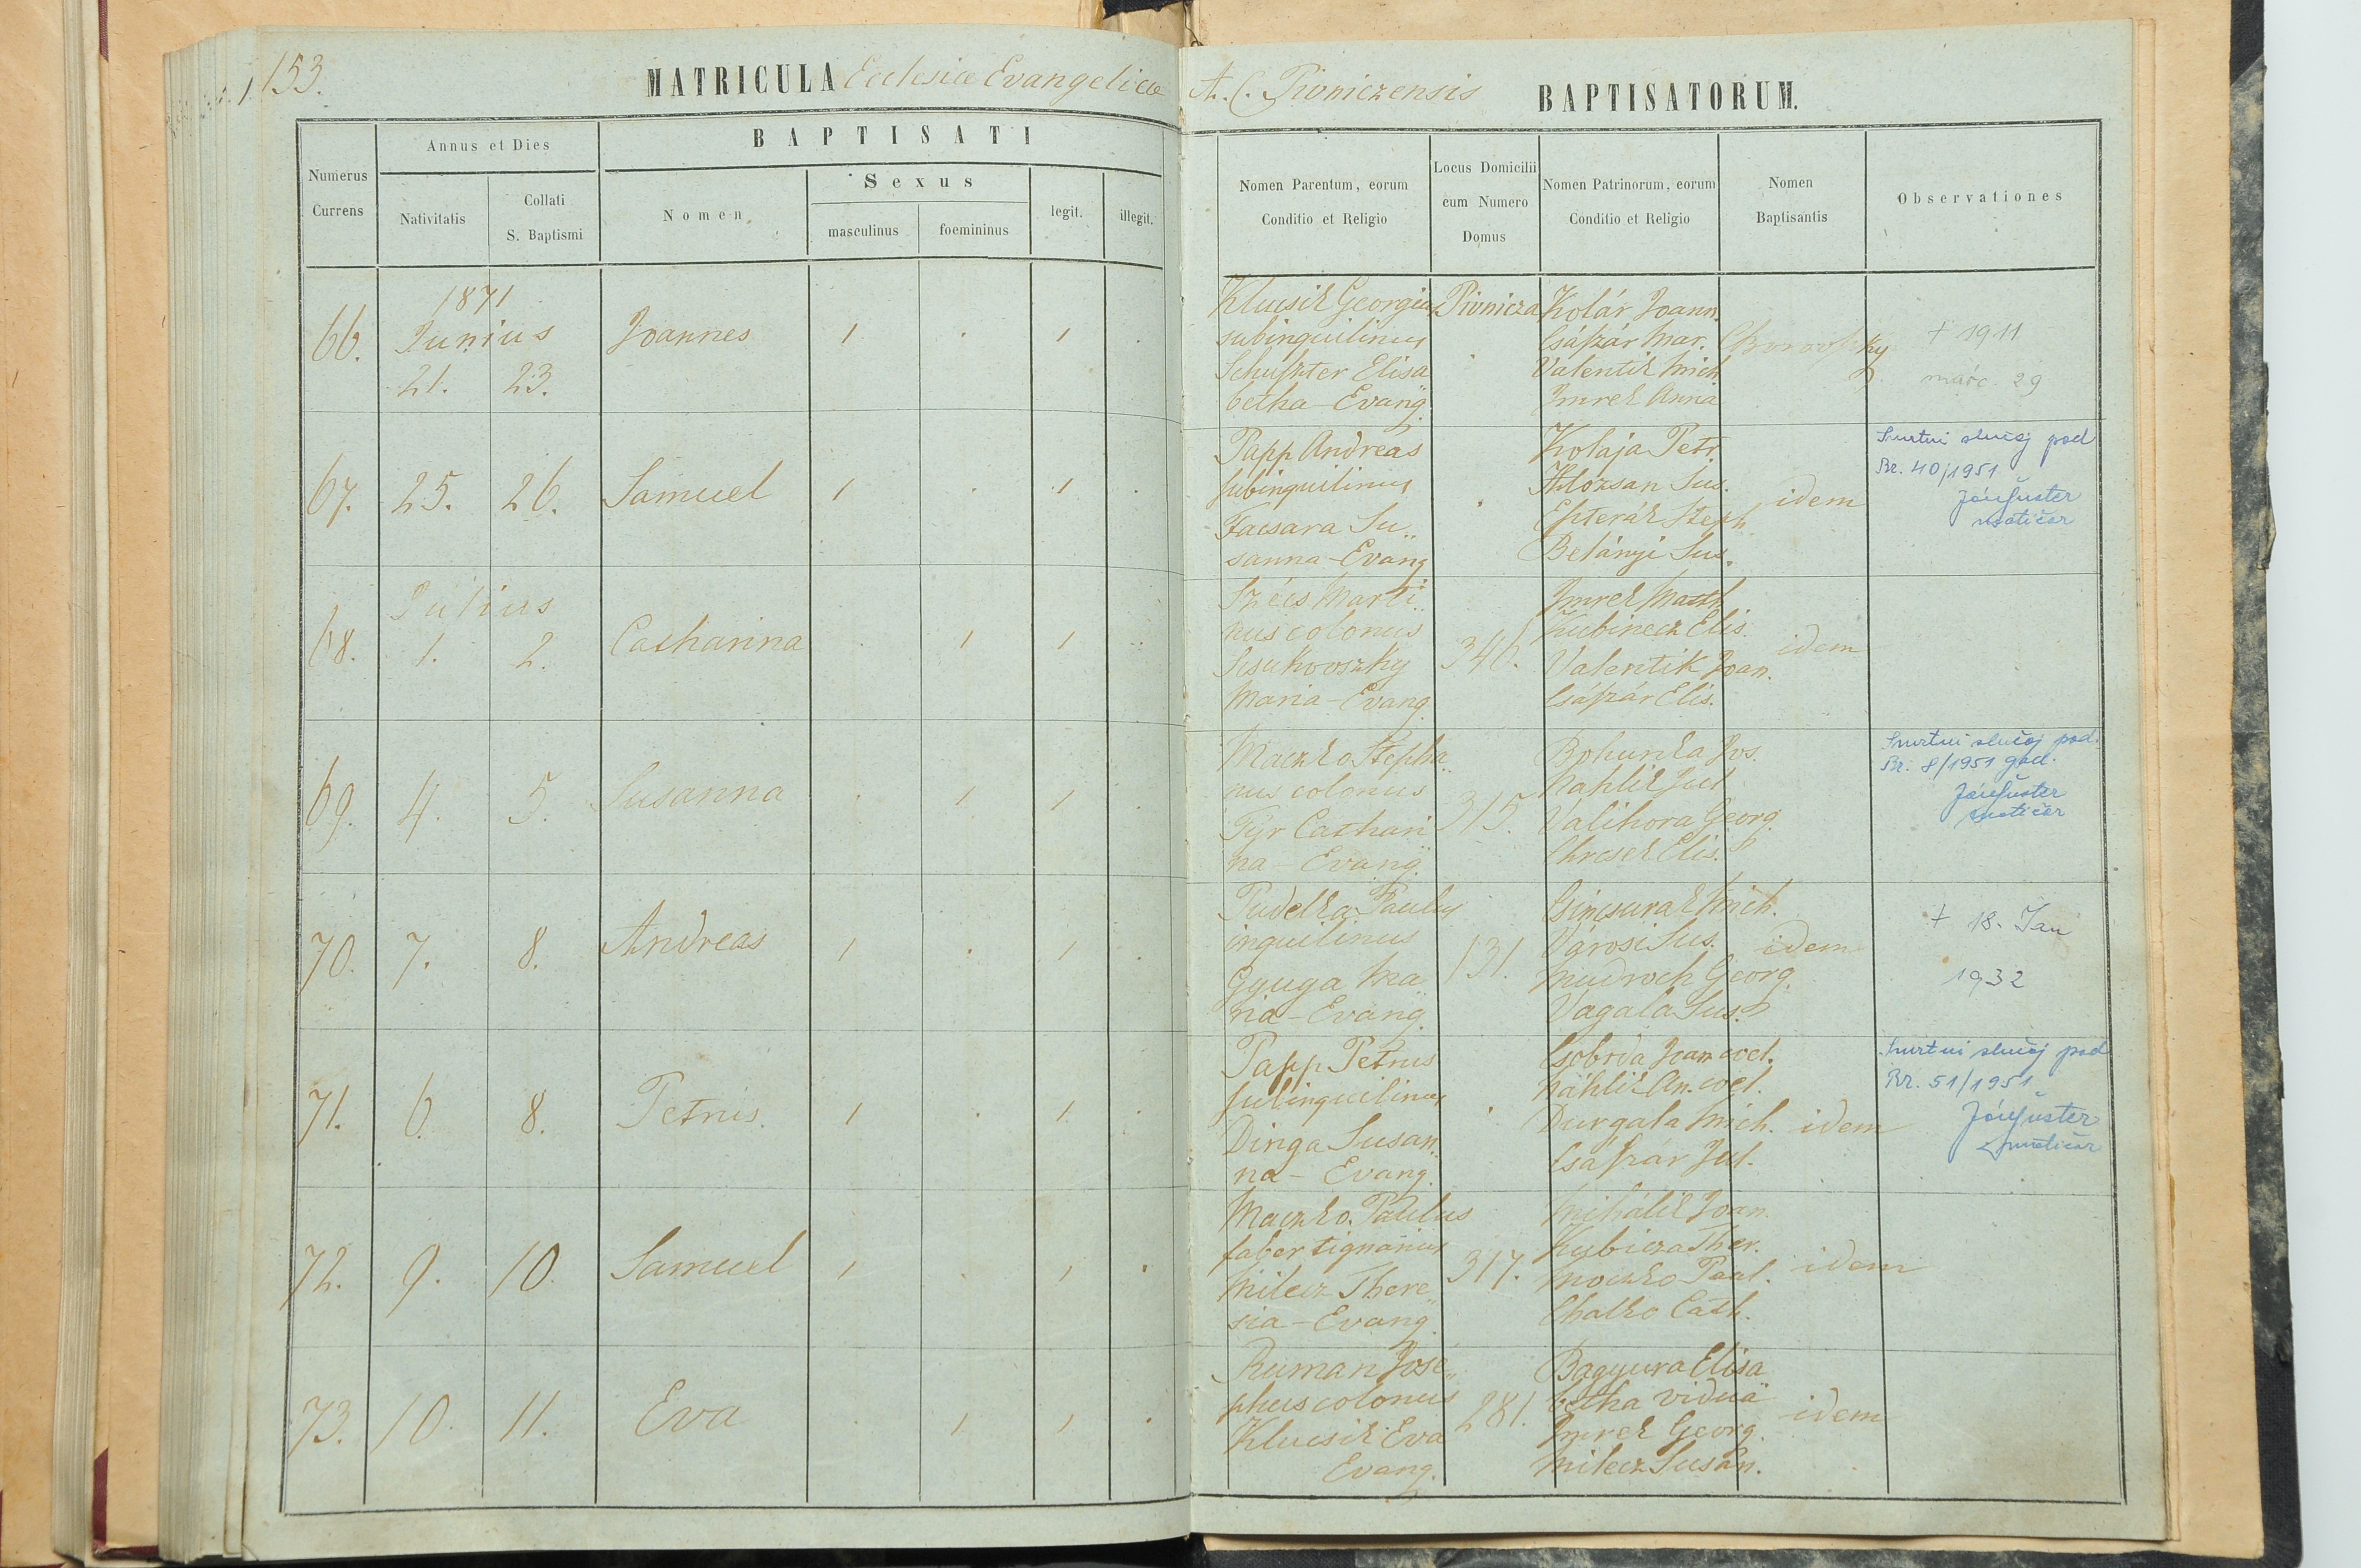 153.
MATRICULA Ecclesiæ Evangelicæ A. C. Pivniczensis BAPTISATORUM.
Numerus Currens
Annus et Dies
Nativitatis
Collati S. Baptismi
BAPTISATI
Nomen
Sexus
masculinus
foemininus
legit.
illegit.
Nomen Parentum, eorum Conditio et Religio
Locus Domicilii cum Numero Domus
Nomen Patrinorum, eorum Conditio et Religio
Nomen Baptisantis
Observationes
1871
66. Junius 21. 23. Joannes 1 . 1 .
Klucsik Georgius
subinquilinus
Schuszter Elisa
betha - Evang.
Pivnicza
Kolár Joann.
Császár Mar.
Valentik Mich.
Imrek Anna
+ 1911
márc. 29
67. 25. 26. Samuel 1 . 1 .
Papp Andreas
subinquilinus
Facsara Su„
sanna - Evang
Kolaja Petr.
Sus.
Eszterák Steph
Belányi Sus.
idem
Smrtni slučaj pod
Br. 40/1951
matičar
Julius
68. 1. 2. Catharina . 1 1 .
Szécs Marti„
nus colonus
Maria - Evang.
346.
Imrek Math
Kubinecz Elis.
Valentik Joan.
Császár Elis.
idem
69. 4. 5. Susanna . 1 1 .
Maczko Stepha„
nus colonus
Tyr Cathari
na - Evang.
315.
Bohunka Jos.
Nahlik Jud
Valihora Georg.
Chrcsek Elis.
Smrtni slučaj pod.
Br. 8/1951 god.
matičar
70. 7. 8. Andreas 1 . 1 .
Pudelka Paulus
inquilinus
Gyuga Ma„
ria - Evang.
131.
Csincsurak Mich.
Városi Sus.
Mudroch Georg.
Vagala Sus.
idem
+ 18. Jan
1932
71. 6. 8. Petrus. 1 . 1 .
Papp Petrus
subinquilinus
Dinga Susan„
na - Evang.
Csobrda Joan coel.
Náhlik An. coel.
Durgala Mich.
Császár Jud.
idem
Smrtni slučaj pod
Br. 51/1951
matičar
72. 9. 10. Samuel 1 . 1 .
Maczko Paulus
faber tignarius
Milecz There„
sia - Evang.
317.
Mihálik Joan.
Kubicza Ther.
Moczko Paul.
Chalko Cath.
idem
73. 10. 11. Eva . 1 1 .
Ruman Jose„
phus colonus
Klucsik Eva
Evang.
281.
Bagyura Elisa
betha vidua
Imrek Georg.
Milecz Susan.
idem